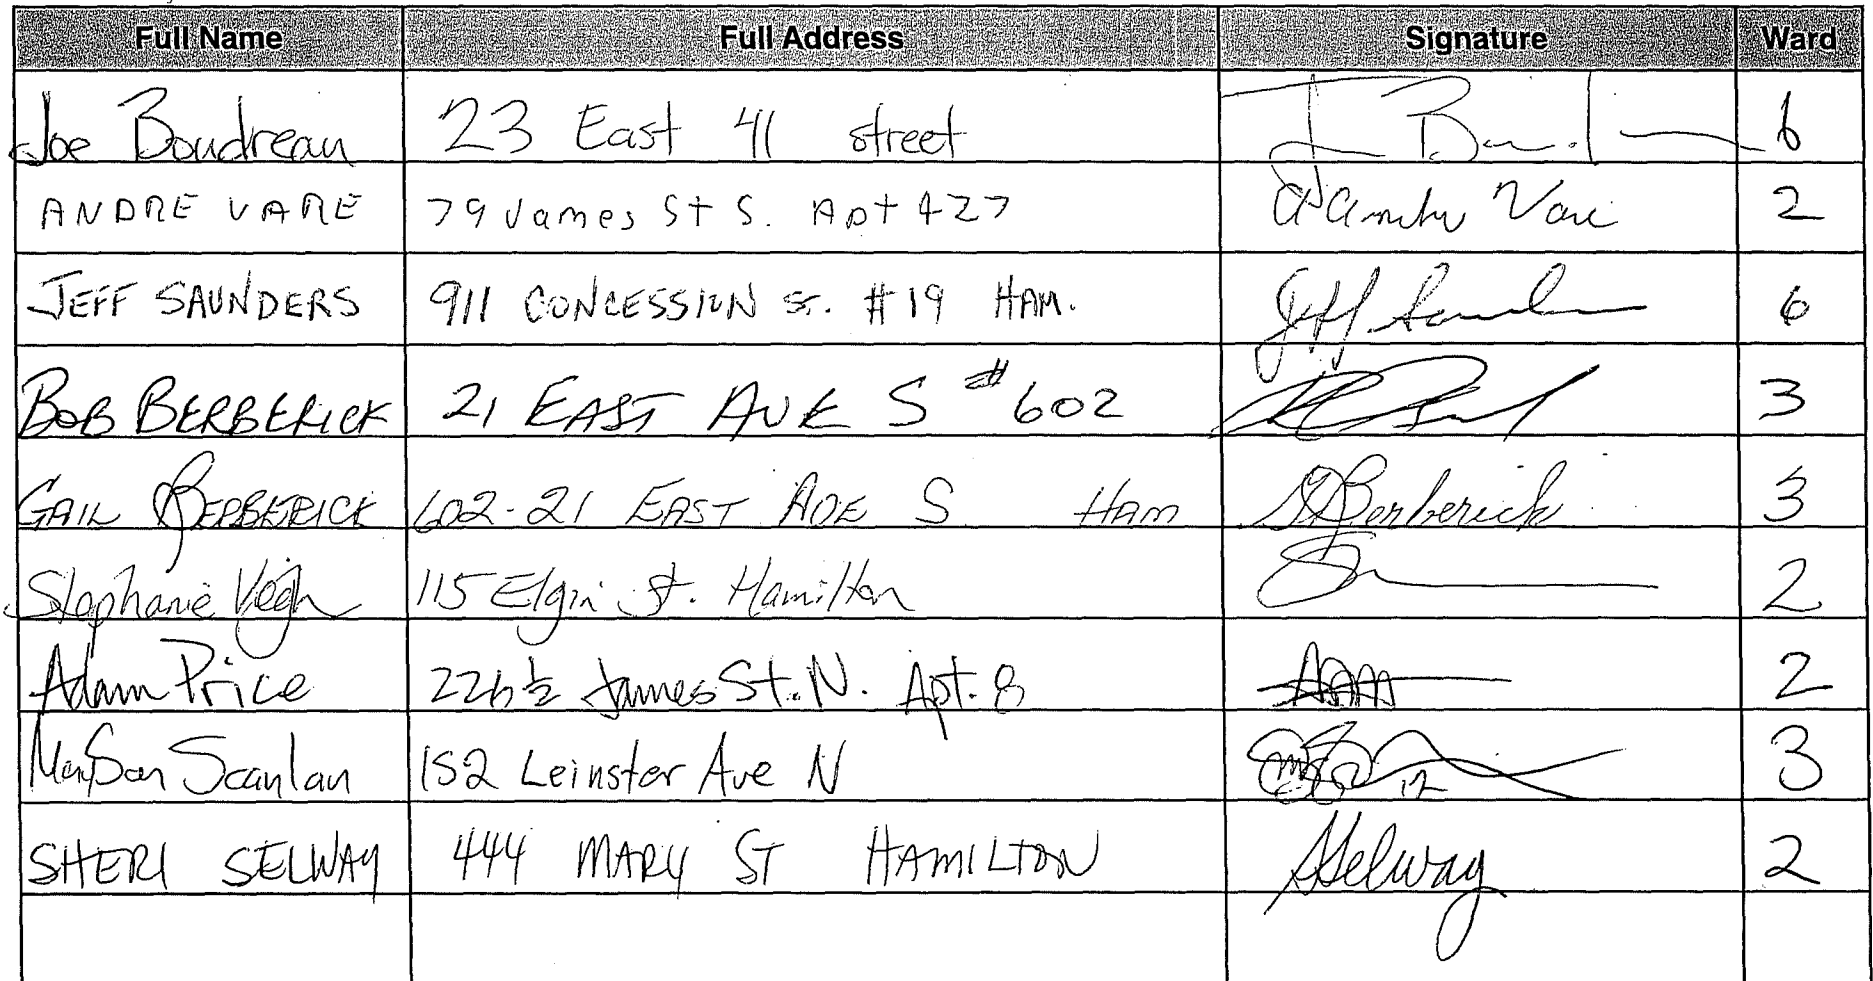 Full Name Full Address Signature Ward
Joe Boudreau 23 East 41 street J Bou 6
ANDRE VARE 79 James St S. Apt 427 Andre Vare 2
JEFF SAUNDERS 911 CONCESSION ST. #19 HAM. Jeff Saunders 6
BOB BERBERICK 21 EAST AVE S #602 3
GAIL BERBERICK 602-21 EAST AVE S HAM G Berberick 3
Stephanie Vegh 115 Elgin St. Hamilton 2
Adam Price 226 1/2 James St. N. Apt. 8 2
Scanlan 152 Leinster Ave N 3
SHERI SELWAY 444 MARY ST HAMILTON SSelway 2